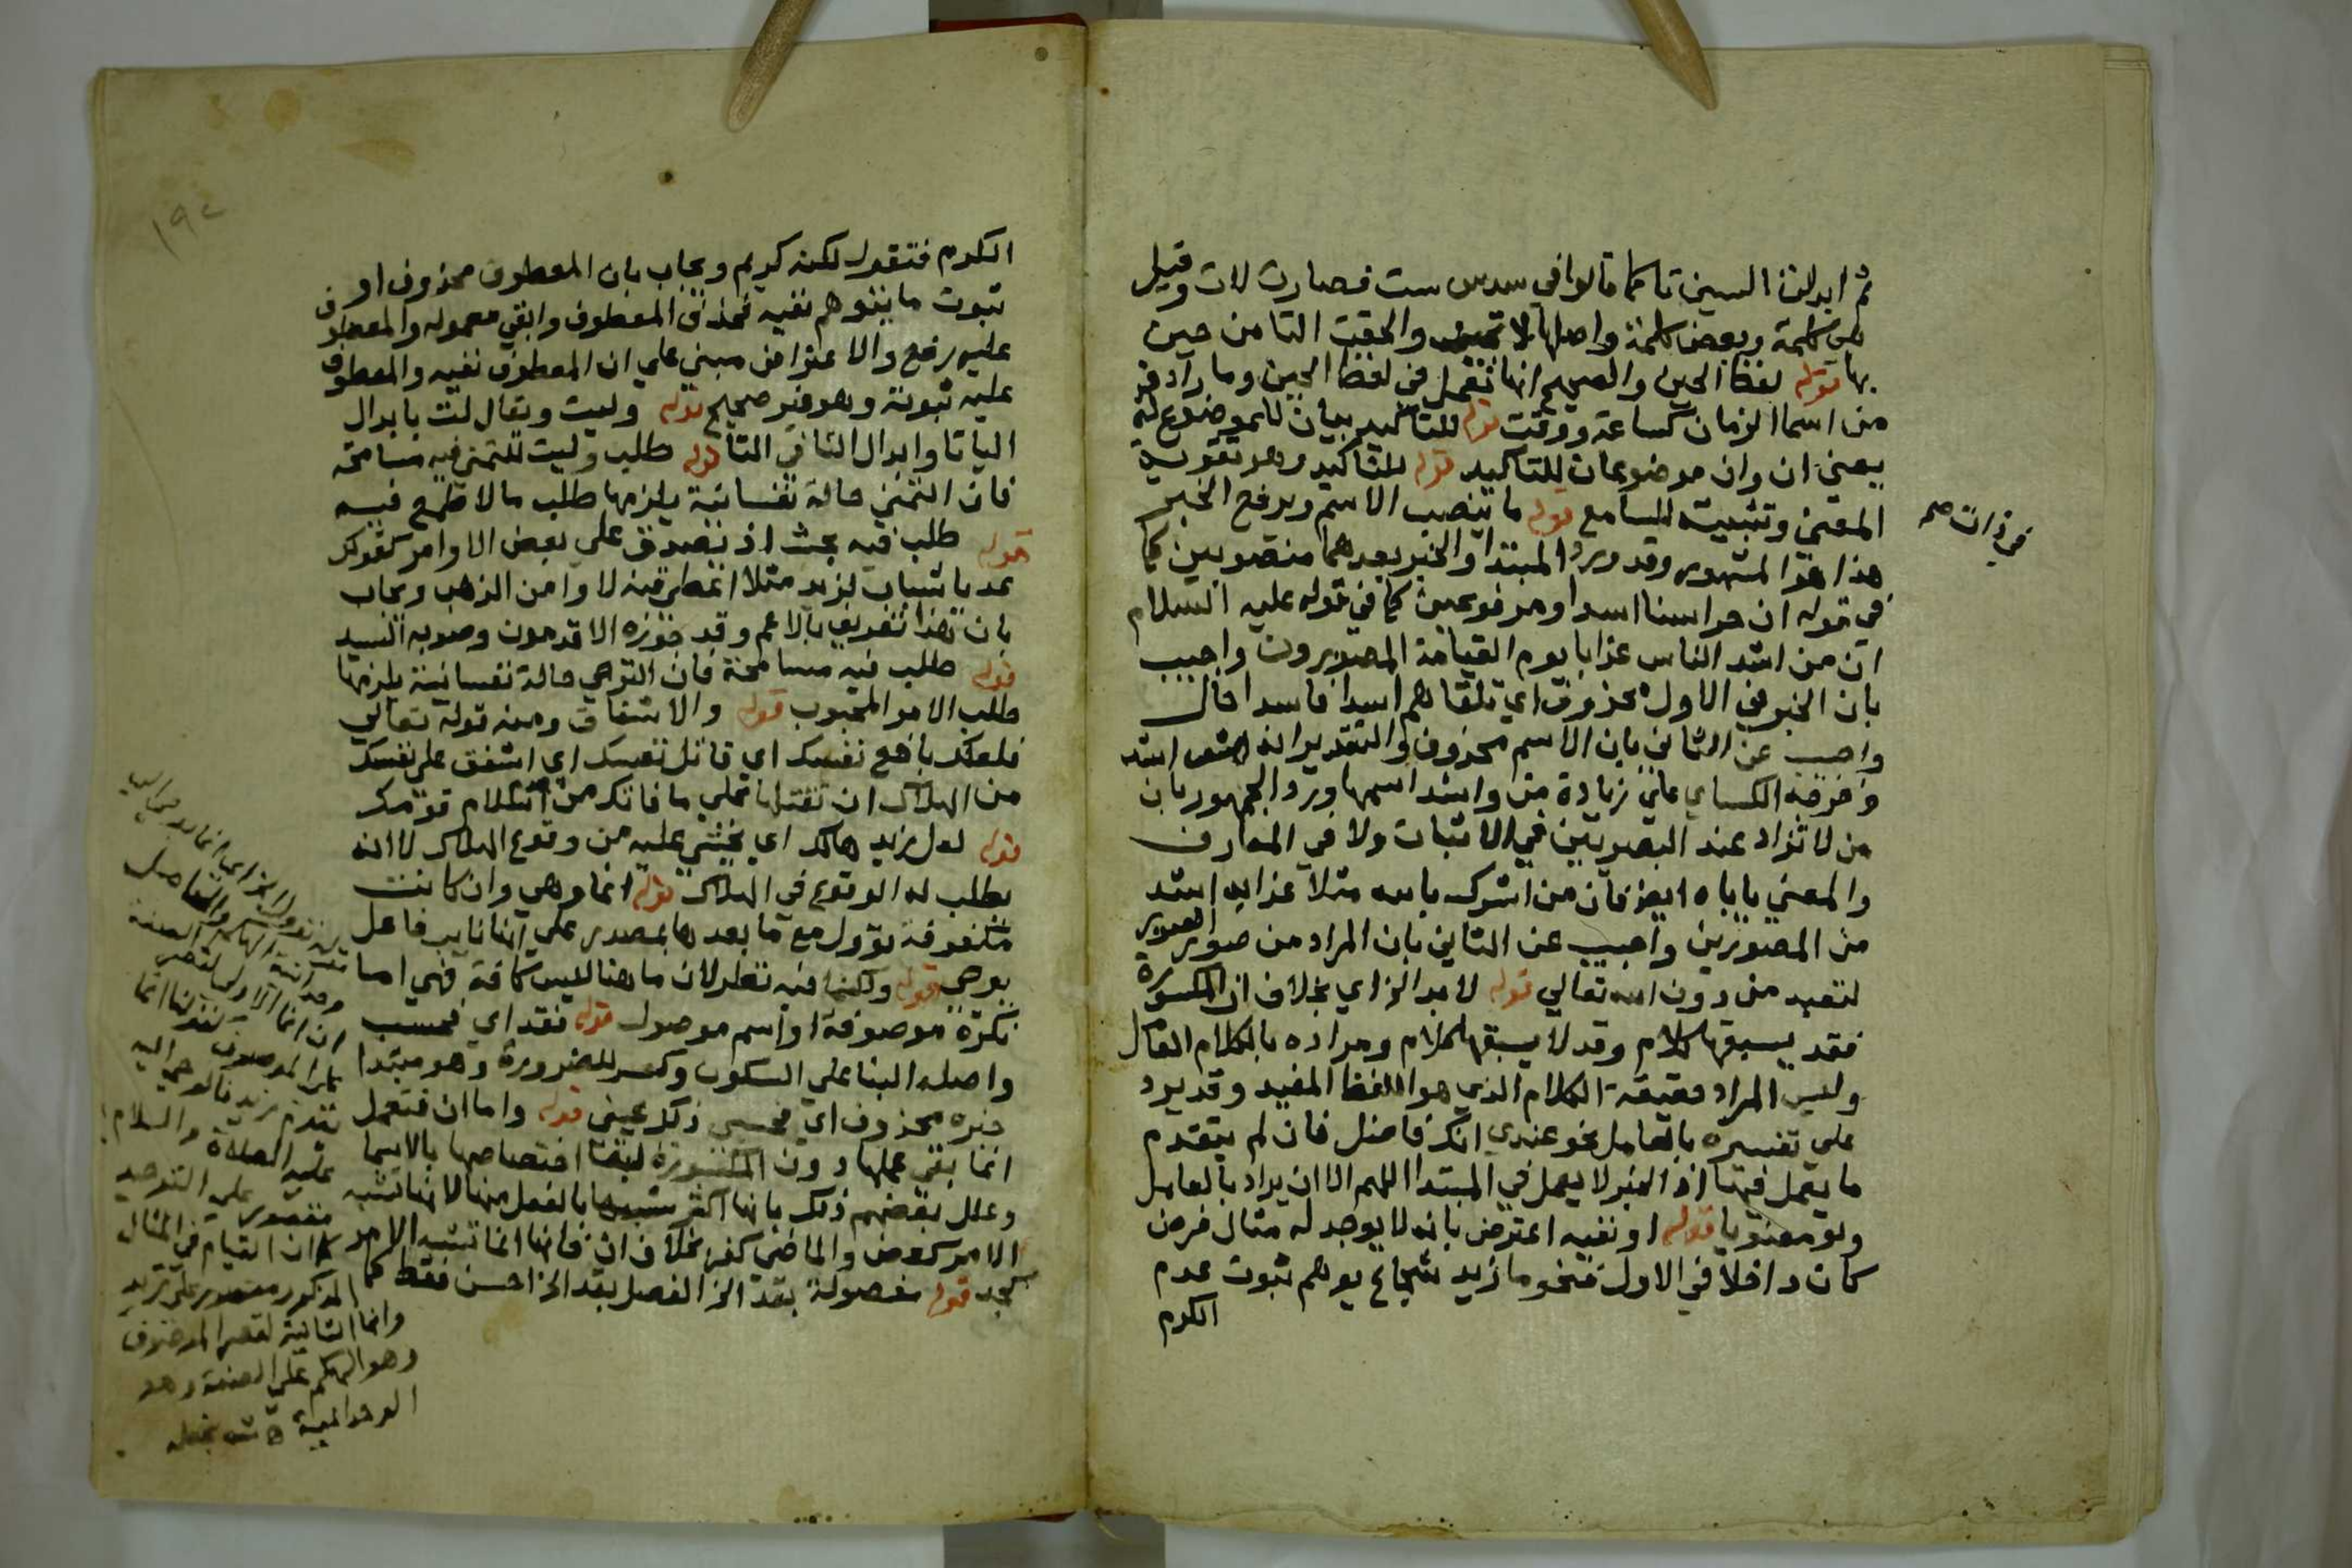 ثم ابدلت السين تا كما قالوا في سدس ست فصارت لات وقيل
هي كلمة وبعض كلمة واصلها لا تحين والحقت التا من حين
بها قوله لفظ الحين والصحيح انها تعمل في لفظ الحين وما رادفه
من اسما الزمان كساعة ووقت قوله للتاكيد بيان للموضوع له
يعني ان وان موضوعان للتاكيد قوله للتاكيد وهو تقوية
المعني وتثبيته للسامع قوله ما ينصب الاسم ويرفع الخبر
في ذات صح
هذا هو المشهور وقد ورد المبتدا والخبر بعدهما منصوبين كما
في قوله ان حراسنا اسدا ومرفوعين كما في قوله عليه السلام
ان من اشد الناس عذابا يوم القيامة المصورون واجيب
بان الخبر في الاول محذوف اي تلقاهم اسدا فاسدا حال
واجيب عن الثاني بان الاسم محذوف والتقدير انه اشد
وخرجه الكساي علي زيادة من واشد اسمها ورد الجمهور بان
من لا تزاد عند البصريين في الاثبات ولا في المعارف
والمعني ياباه ايضا فان من اشرك بالله مثلا عذابه اشد
من المصورين واجيب عن الثاني بان المراد من صور الصور
لتعبد من دون الله تعالي قوله لا بد الخ اي بخلاف ان المكسورة
فقد يسبقها كلام وقد لا يسبقها كلام ومراده بالكلام العامل
وليس المراد حقيقة الكلام الذي هو اللفظ المفيد وقد يرد
علي تفسيره بالعامل نحو عندي انك فاضل فان لم يتقدم
ما يعمل فيها اذ الخبر لا يعمل في المبتدا اللهم الا ان يراد بالعامل
ولو معنويا قوله او نفيه اعترض بانه لا يوجد له مثال فرض
كان داخلا في الاول فنحو ما زيد شجاع يوهم ثبوت عدم
الكرم
١٩٢
الكرم فتقول لكنه كريم ويجاب بان المعطوف محذوف او
ثبوت ما يتوهم نفيه فحذف المعطوف وابقي معموله والمعطوف
عليه رفع والاعتراض مبني علي ان المعطوف نفيه والمعطوف
عليه ثبوته وهو غير صحيح قوله وليت ويقال لت بابدال
اليا تا وابدال التا في التا قوله طلب وليت للتمني فيه مسامحة
فان التمني حالة نفسانية يلزمها طلب ما لا طمع فيه
قوله طلب فيه بحث اذ تصدق علي بعض الاوامر كقولك
بان هذا تعريف بالاعم وقد جوزه الاقدمون وصوبه السيد
قوله طلب فيه مسامحة فان الترجي حالة نفسانية يلزمها
طلب الامر المحبوب قوله والاشفاق ومنه قوله تعالي
فلعلك باخع نفسك اي قاتل نفسك اي اشفق علي نفسك
من الهلاك ان تقتلها علي ما فاتك من اسلام قومك
قوله لعل زيد هالك اي يخشي عليه من وقوع الهلاك لا انه
يطلب له الوقوع في الهلاك قوله انما وهي وان كانت
مكفوفة تؤول مع ما بعدها بمصدر علي انها نايب فاعل
يوحي قوله ولكنما فيه نظر لان ما هنا ليس كافة فهي اما
نكرة موصوفة او اسم موصول قوله فقد اي فحسب
واصله البنا علي السكون وكسر للضرورة وهو مبتدا
خبره محذوف اي فحسبي ذلك عيني قوله واما ان فتعمل
انما بقي عملها دون المكسورة لبقا اختصاصها بالاسما
وعلل بعضهم ذلك بانها اكثر شبها بالفعل منها لانها تشبه
الامر كعض والماضي كفر بخلاف ان فانها انما تشبه الامر
كجد قوله مفصولة بقد الخ الفصل بقد الخ احسن فقط
ان انما الاولي لقصر
علي الموصوف كقولنا انما
يقوم زيد فالوحي اليه
عليه الصلاة والسلام
مقصور علي التوحيد
كما ان القيام في المثال
المذكور مقصور علي زيد
وانما الثانية لقصر الموصوف
وهو الهكم علي الصفة وهو
الوحدانية